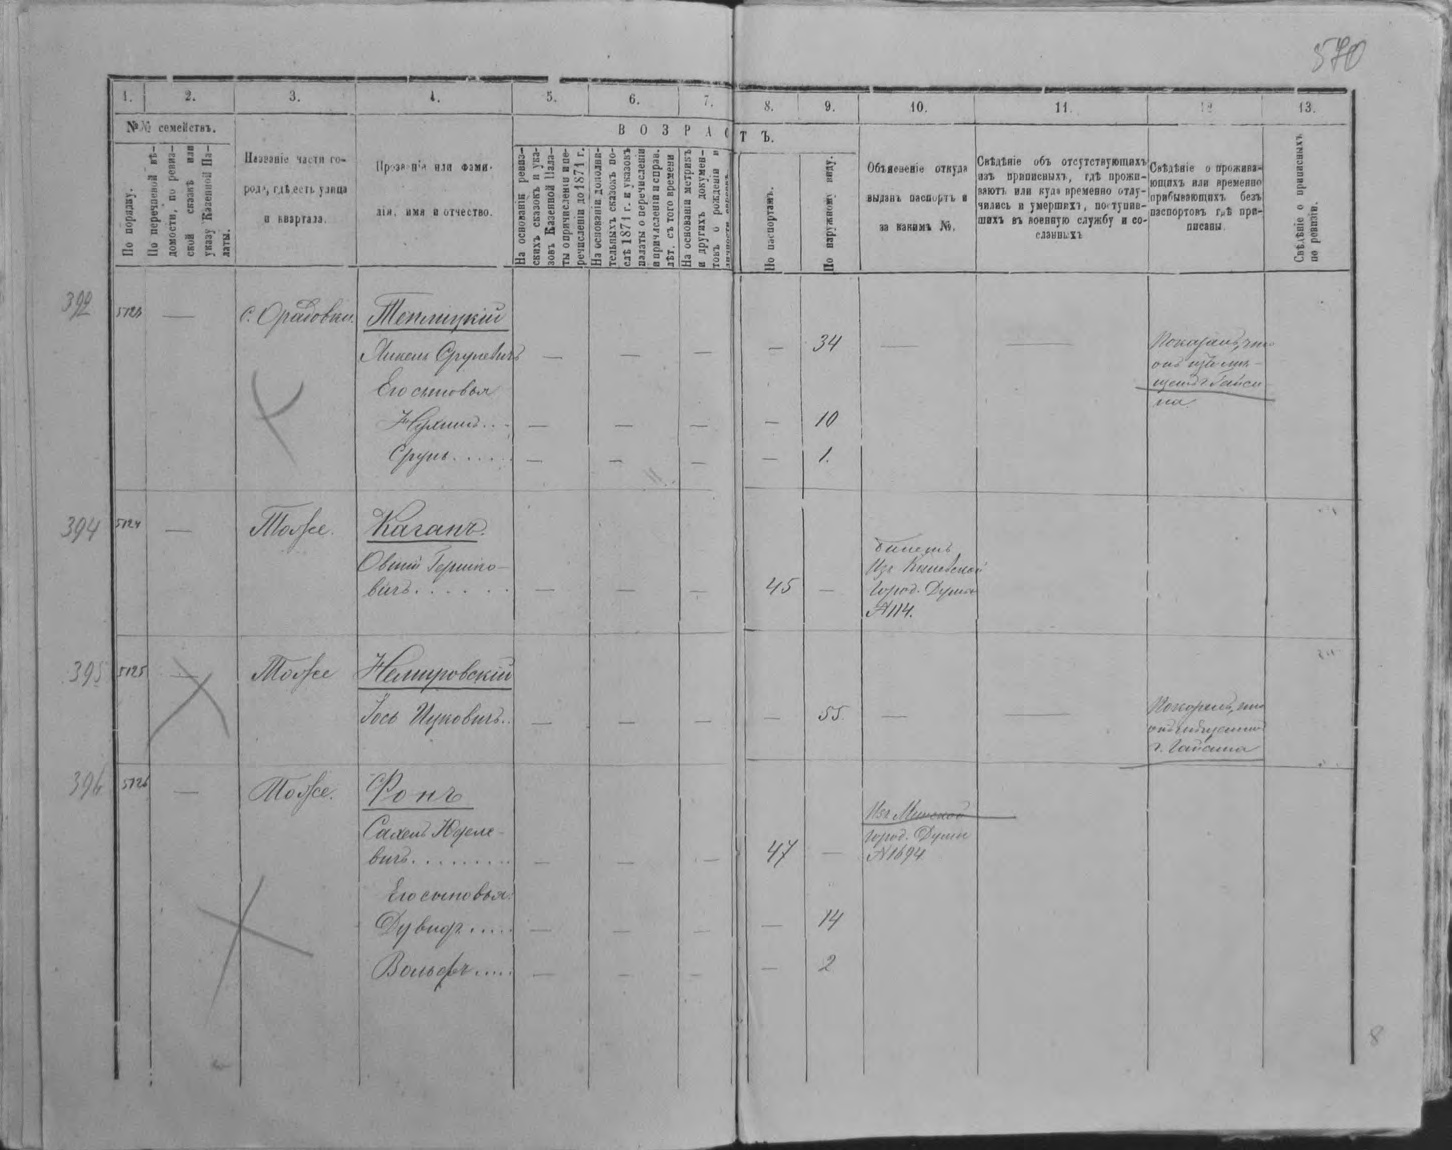 570
1. 2. 3. 4. 5. 6. 7. 8. 9. 10. 11. 12 13.
№№ семействъ.
По порядку.
По перечневой вѣ-
домости, по ревиз-
ской сказкѣ или
указу Казенной Па-
латы.
Названіе части го-
рода, гдѣ есть улица
и квартала.
Прозванія или фами-
лія, имя и отчество.
ВОЗРАСТЪ.
На основаніи ревиз-
скихъ сказокъ и ука-
зовъ Казенной Пала-
ты о причисленіи и пе-
речисленіи до 1871 г.
На основаніи дополни-
тельныхъ сказокъ по-
слѣ 1871 г. и указовъ
палаты о перечисленіи
и причисленіи и справ.
лѣт. съ того времени
На основаніи метрикъ
и другихъ докумен-
товъ о рожденіи и
По паспортамъ.
По наружному виду.
Объясненіе откуда
выданъ паспортъ и
за какимъ №.
Свѣдѣніе объ отсутствующихъ
изъ приписныхъ, гдѣ прожи-
ваютъ или куда временно отлу-
чились и умершихъ, поступив-
шихъ въ военную службу и со-
сланныхъ
Свѣдѣніе о прожива-
ющихъ или временно
прибывающихъ безъ
паспортовъ гдѣ при-
писаны.
Свѣдѣніе о приписныхъ
по ревизіи.
392 5123 — с. Оратовки. Теплицкій
Сруловичъ — — — — 34 — — Показалъ, что
онъ изъ мѣ-
щанъ г. Гайси-
на
Его сыновья
Нухимъ . . — — — — 10
Сруль . . . . . — — — — 1.
394 5124 — Тоже. Каганъ.
Овший Гершко-
вичъ . . . . . . — — — 45 —
Билетъ
Изъ Кіевской
Город. Думы
№ 114.
395 5125 — Тоже Немировскій
Іось Ицковичъ . . — — — — 55 — — Показалъ, что
г. Гайсина
396 5126 — Тоже. Фонъ
Изъ Минской
Сахель Юделе-
вичъ . . . . . . . . — — — 47 —
Город. Думы
№ 1694
Его сыновья:
Дувидъ . . . . . — — — — 14
Вольфъ . . . . — — — — 2
8